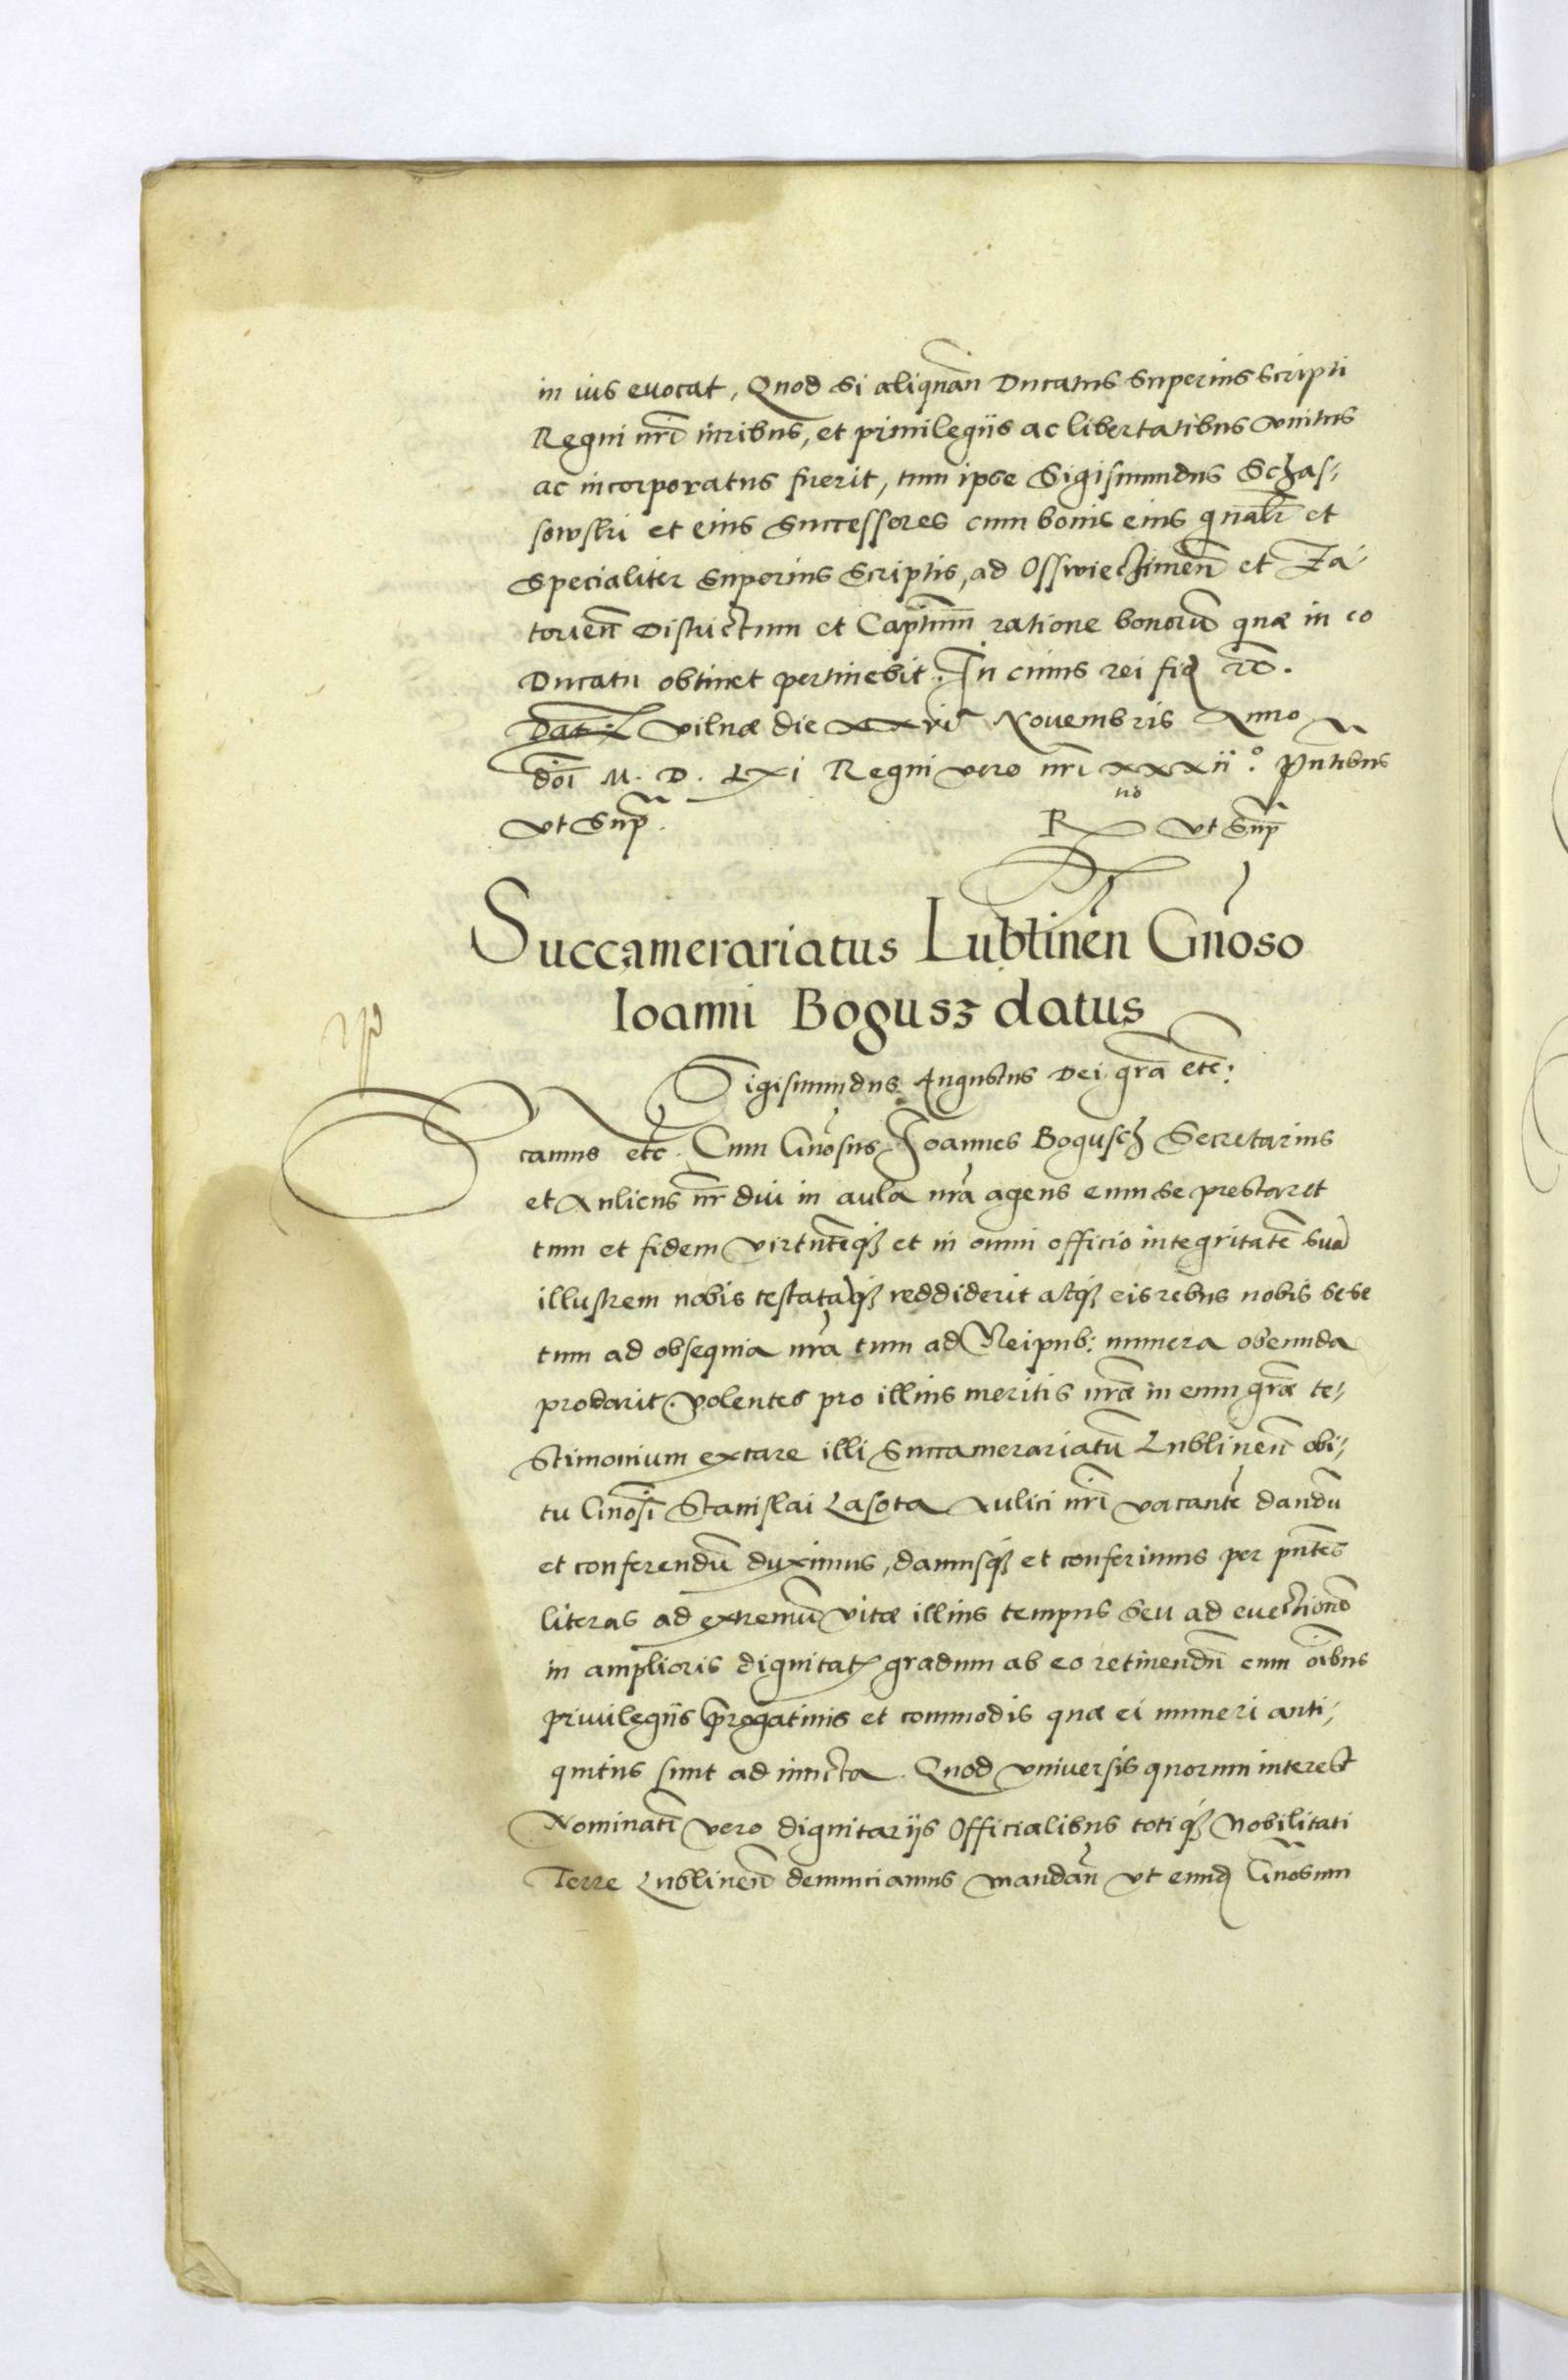 in ius euocat, Quod si aliquan̄ Ducatus superius scripti
Regni nr̄i iuribus, et priuilegijs ac libertatibus vnitus
ac incorporatus fuerit, tum ipse Sigismundus Schas-
sowski et eius successores cum bonis eius gn̄alr̄ et
specialiter superius scriptis, ad Osswieczimen̄ et Za-
torien̄ Districtum et Cap̄tum ratione bonorū quæ in eo
Ducatu obtinet pertinebit. In cuius rei fid rc̄.
Dat: Vilnæ die xxvi Nouembris Anno
dōi M. D. LXi Regni vero nr̄i xxxii°. Pn̄tibus
vt sup̄. R vt sup̄
Succamerariatus Lublinen̄ Gn̄oso
Ioanni Bogusz datus
Sigismundus Augustus Dei gr̄a etc̄:
camus etc̄. Cum Gn̄osus Ioannes Bogusch Secretarius
et Aulicus nr̄ diu in aula nr̄a agens eum se prestaret
tum et fidem virtutēq3 et in omni officio integritatē suā
illustrem nobis testatāq3 reddiderit atq3 eis rebus nobis sese
tum ad obsequia nr̄a tum ad Reipub: munera obeunda
probarit. Volentes pro illius meritis nr̄æ in eum gr̄æ te-
stimonium extare illi Succamerariatū Lublinen̄ obi-
tu Gn̄osi Stanislai Lasota Aulici nr̄i vacantē dandū
et conferendū duximus, damusq3 et conferimus per pn̄tes
literas ad extremū vitæ illius tempus seu ad euectionē
in amplioris dignitatis gradum ab eo retinendū cum oībus
priuilegijs p̄rogatiuis et commodis quæ ei muneri anti-
quitus sunt adiuncta. Quod vniuersis quorum interest
Nominatī vero dignitarijs Officialibus totiq3 Nobilitati
Terre Lublinen̄ denunciamus mandan̄ vt eund Gn̄osum